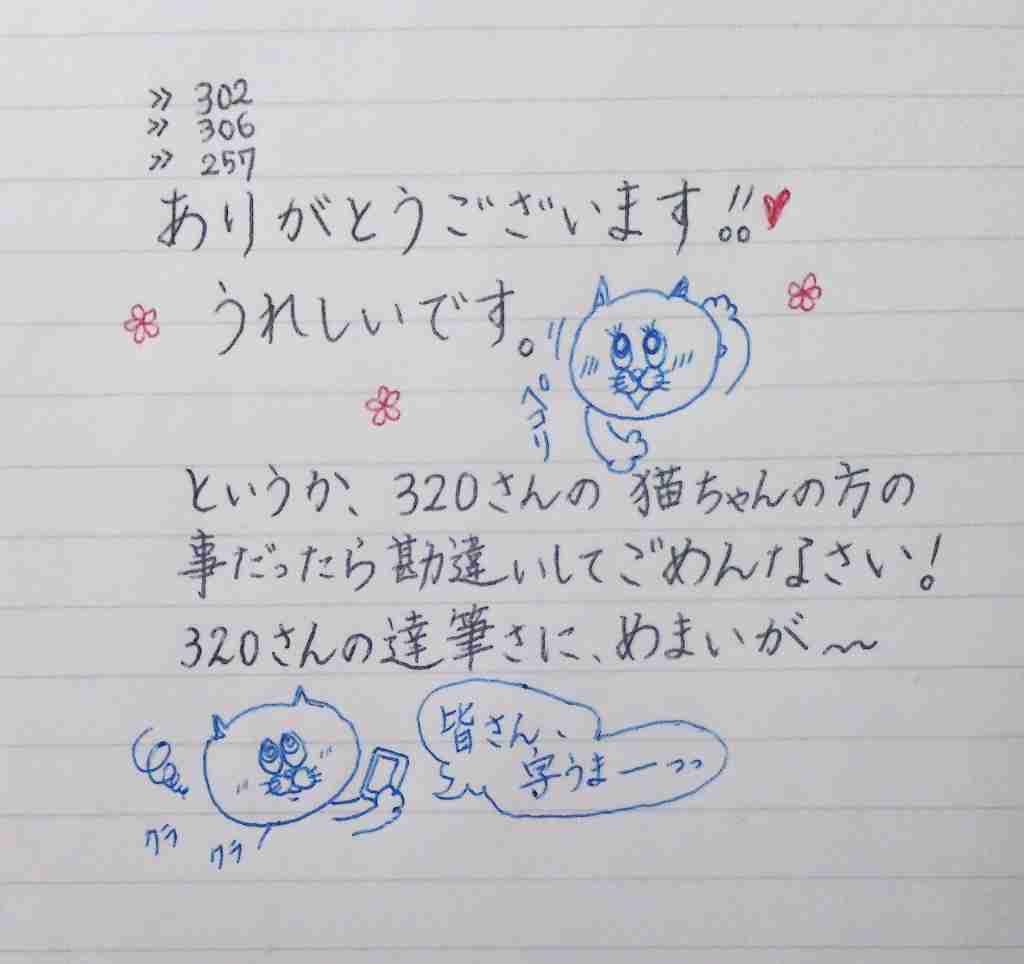 》 302
》 306
》 257
ありがとうございます!!
うれしいです。
ペコリ
というか、320さんの猫ちゃんの方の
事だったら勘違いしてごめんなさい!
320さんの達筆さに、めまいが〜
皆さん、
字うまーっっ
クラ
クラ